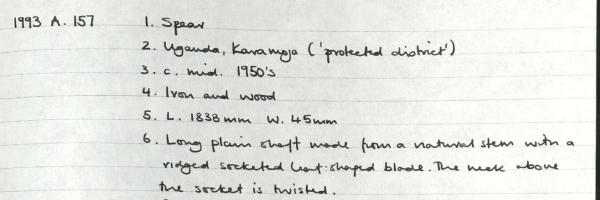 1993 A. 157 1. Spear
2. Uganda, Karamoja ('protected district')
3. c. mid. 1950's
4. Iron and wood
5. L. 1838mm W. 45mm
6. Long plain shaft made from a natural stem with a
ridged socketed leaf-shaped blade. The neck above
the socket is twisted.